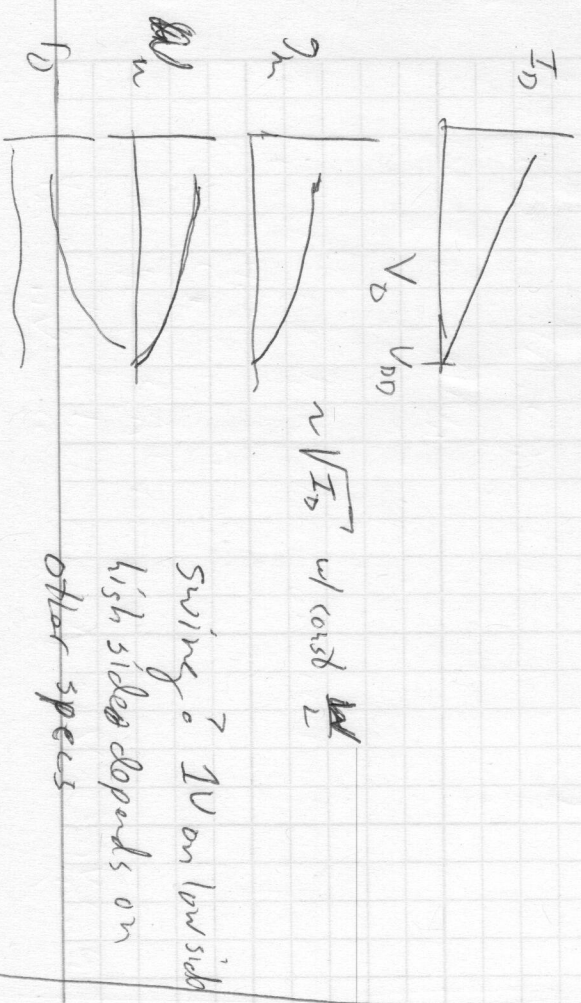 I_D
V_D V_DD
g_m
~ √I_D w/ const W/L
Swing? 1V on low side
high side depends on
other specs
r_o